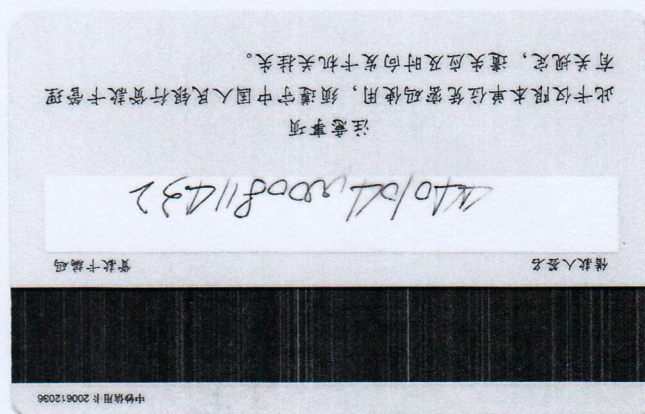 中钞信用卡 200612036
借款人签名 贷款卡编码
注意事项
此卡仅限本单位凭密码使用，须遵守中国人民银行贷款卡管理
有关规定，遗失应及时向发卡机关挂失。